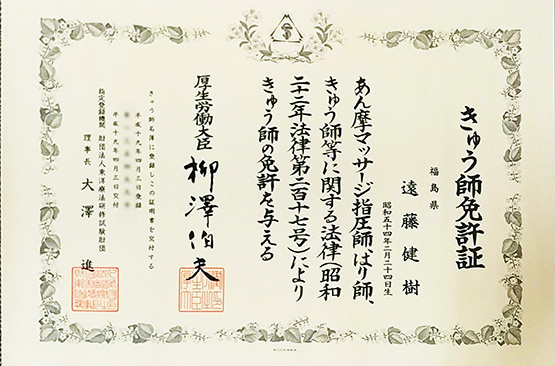 きゅう師免許証
福島県
遠藤健樹
昭和五十四年二月二十四日生
あん摩マッサージ指圧師、はり師、
きゅう師等に関する法律(昭和
二十二年法律第二百十七号)により
きゅう師の免許を与える
厚生労働大臣 柳澤伯夫
きゅう師名簿に登録しこの証明書を交付する
平成十九年四月三日登録
平成十九年四月三日交付
指定登録機関 財団法人東洋療法研修試験財団
理事長 大澤進